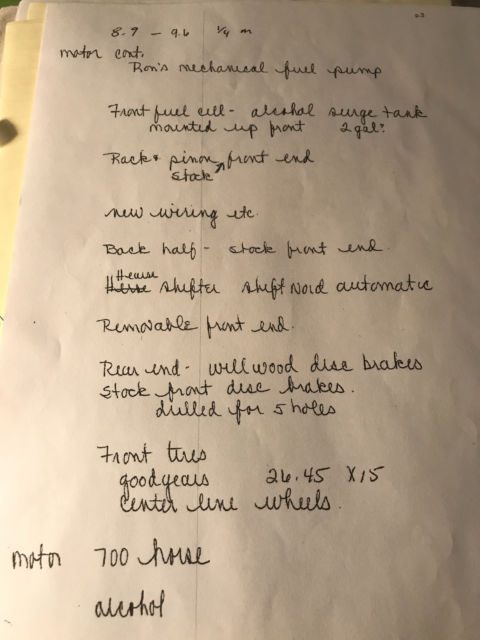 8.9 - 9.6 1/4 m
motor cont.
Ron's mechanical fuel pump
Front fuel cell - alcohol surge tank
mounted up front 2 gal.
Rack & pinon front end
stock
new wiring etc.
Back half - stock front end.
shifter shift Noid automatic
Removable front end.
Rear end - willwood disc brakes
stock front disc brakes.
drilled for 5 holes
Front tires
goodyears 26.45 X 15
center line wheels.
motor 700 horse
alcohol